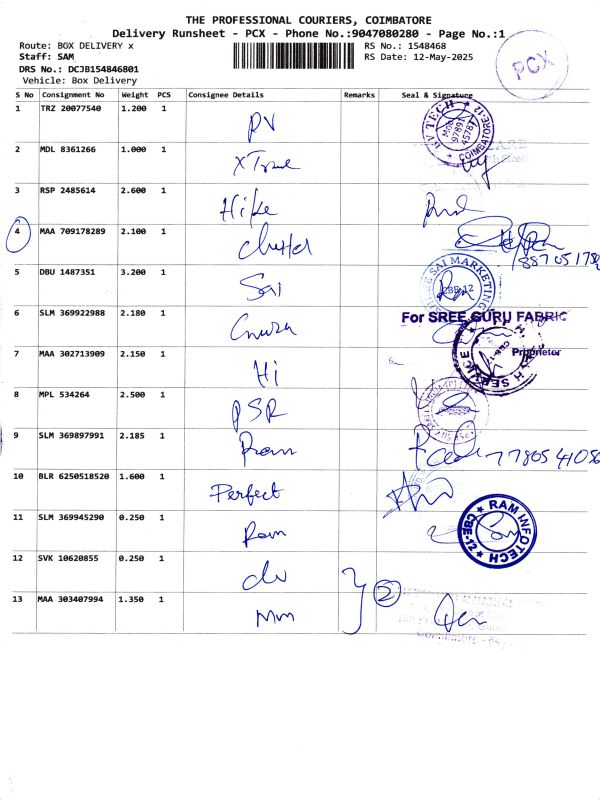 THE PROFESSIONAL COURIERS, COIMBATORE
Delivery Runsheet - PCX - Phone No.:9047080280 - Page No.:1
Route: BOX DELIVERY x
RS No.: 1548468
Staff: SAM
RS Date: 12-May-2025
DRS No.: DCJB154846801
Vehicle: Box Delivery
PCX
S No Consignment No Weight PCS Consignee Details Remarks Seal & Signature
1 TRZ 20077540 1.200 1 PV
V TECH COIMBATORE-12
2 MDL 8361266 1.000 1
3 RSP 2485614 2.600 1 Hike
4 MAA 709178289 2.100 1
5 DBU 1487351 3.200 1 Sai
SREE SAI MARKETING CBE-12
6 SLM 369922988 2.180 1
For SREE GURU FABRIC
Proprietor
7 MAA 302713909 2.150 1 Hi
TECH SERVICE
8 MPL 534264 2.500 1 PSR
9 SLM 369897991 2.185 1 Ram 7780541056
10 BLR 6250518520 1.600 1 Perfect
11 SLM 369945290 0.250 1 Ram
RAM INFOTECH CBE-12
12 SVK 10620855 0.250 1
2
13 MAA 303407994 1.350 1 Mm